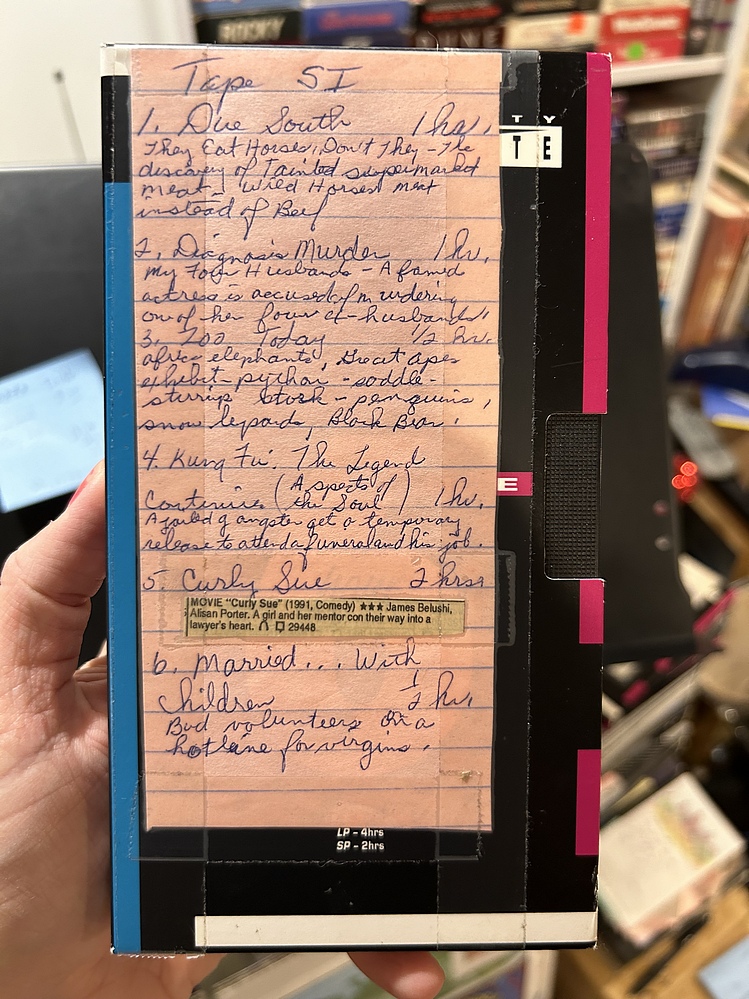 ROCKY
Tape SI
1. Due South 1 hr.
They Eat Horses, Don't They - The
discovery of Tainted supermarked
meat - Wild Horses meat
instead of Beef
2. Diagnosis Murder 1 hr.
My Four Husbands - A famed
actress is accused of murdering
one of her four ex-husbands.
3. Zoo Today 1/2 hr.
africe elephants, Great apes
exhibit - python - saddle-
stirrup stork - penguins,
snow lepards, Black Bear.
4. Kung Fu: The Legend
Continues (Aspects of the Soul) 1 hr.
A jailed gangster get a temporary
release to attend a funeral and his job.
5. Curly Sue 2 hrs.
MOVIE "Curly Sue" (1991, Comedy) ★★★ James Belushi,
Alisan Porter. A girl and her mentor con their way into a
lawyer's heart. 29448
6. Married... With
Children 1/2 hr.
Bud volunteers on a
hotline for virgins.
T Y
T E
E
LP - 4hrs
SP - 2hrs